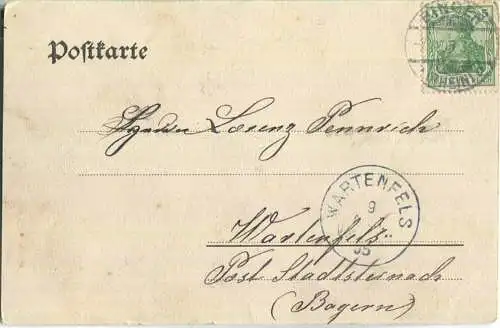 Postkarte
BINGEN
(RHEIN)
5
Lorenz Pennrich
WARTENFELS
9
05
Wartenfels
Post Stadtsteinach
(Bayern)